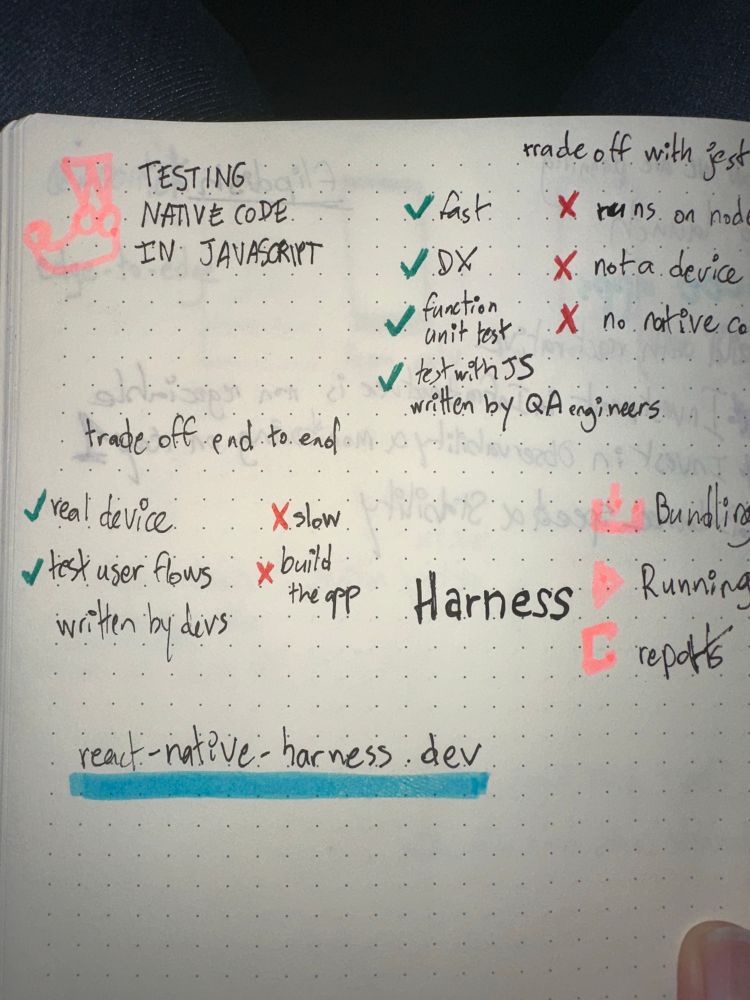 TESTING
NATIVE CODE
IN JAVASCRIPT
trade off with jest
✓ fast
✗ runs on node
✓ DX
✗ not a device
✓ function
unit test
✗ no native co
✓ test with JS
written by QA engineers
trade off end to end
✓ real device
✗ slow
✓ test user flows
✗ build
the app
written by devs
Harness
Bundling
Running
reports
react-native-harness.dev